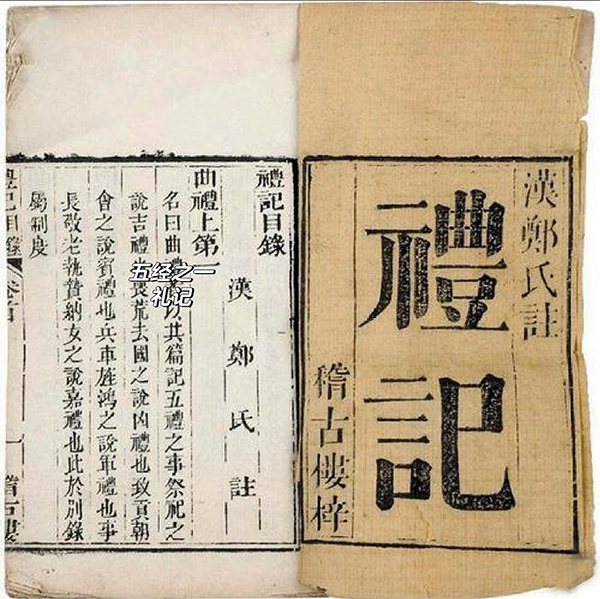 漢鄭氏註
禮記
稽古樓梓
禮記目錄
漢鄭氏註
曲禮上第
名曰曲禮其篇記五禮之事祭祀之
說吉禮也喪荒去國之說凶禮也致貢朝
會之說賓禮也兵車旌鴻之說軍禮也事
長敬老執贄納女之說嘉禮也此於別錄
屬制度
禮記目錄
卷首
一
稽古樓
五经之一
礼记